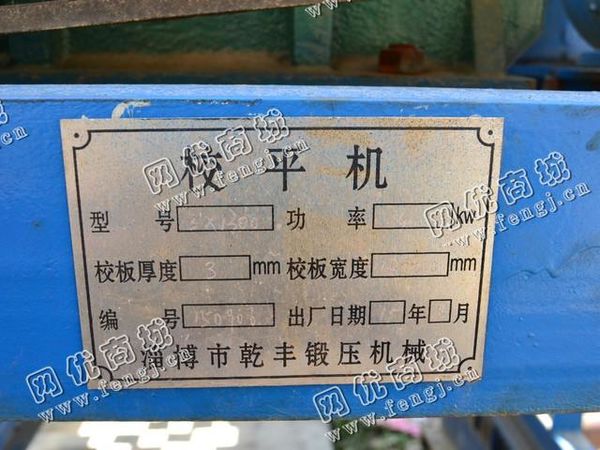 校平机
型号 功率 kw
校板厚度 3 mm 校板宽度 mm
编号 出厂日期 15 年 月
淄博市乾丰锻压机械
网优商城
www.fengj.cn
网优商城
www.fengj.cn
网优商城
www.fengj.cn
网优商城
www.fengj.cn